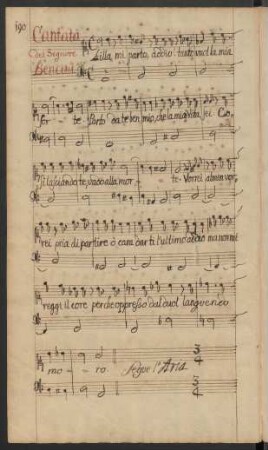 190
Cantata
Del Signore
Bencini
Lilla, mi parto, addio: tanto vuol la mia
for - te parto da te ben mio, che la mia vita sei
lasciando te, vado alla mor - te Vorrei
rei pria di partire ò cara darti l'ultimo addio ma non mi
reggi il core perche oppresso dal duol languendo
mo - ro Segue l'Aria